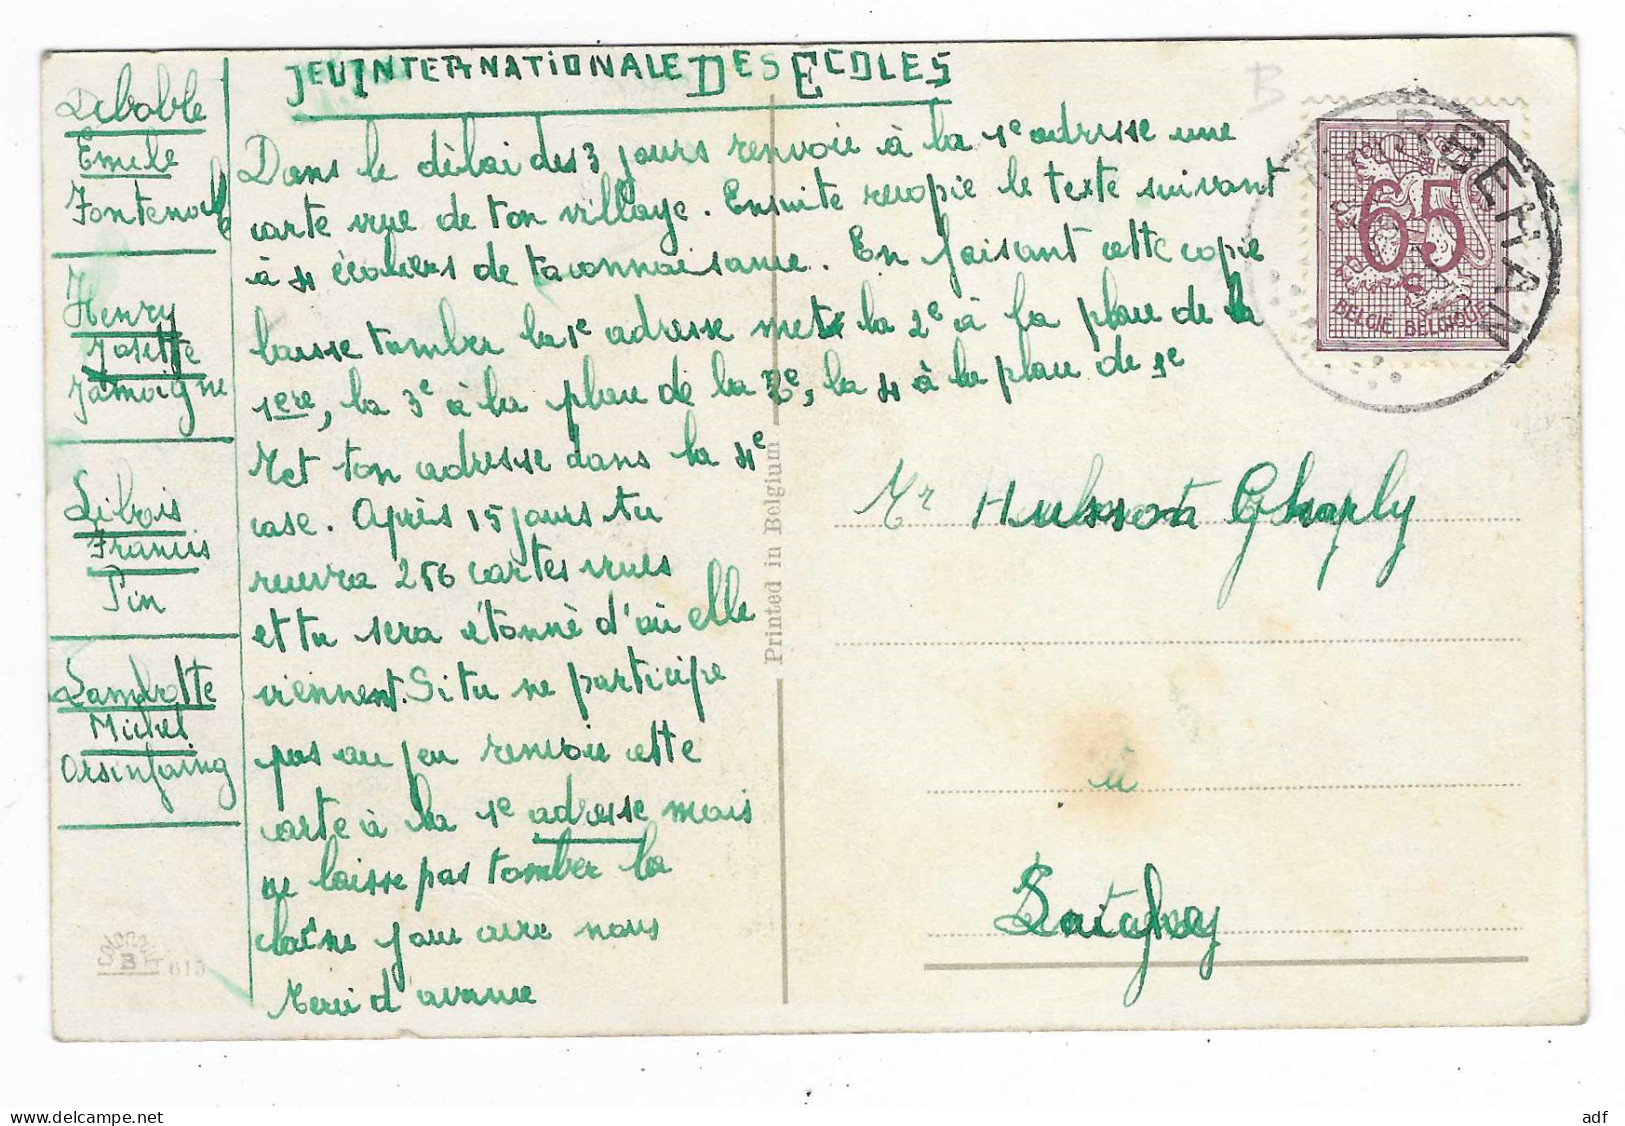 JEU INTERNATIONALE DES ECOLES
Deboble
Emile
Fontenoille
Henry
Josette
Jamoigne
Libois
Francis
Pin
Lambotte
Michel
Orsinfaing
Dans le dèlai des 3 jours renvoie à la 1e adresse une
carte vue de ton village. Ensuite recopie le texte suivant
à 4 écoliers de ta connaissance. En faisant cette copie
laisse tomber la 1e adresse mets la 2e à la place de la
1ere, la 3e à la place de la 2e, la 4 à la place de 3e
Met ton adresse dans la 4e
case. Après 15 jours tu
recevra 256 cartes vues
et tu sera étonné d'où elle
viennent. Si tu ne participe
pas au jeu renvoie cette
carte à la 1e adresse mais
ne laisse pas tomber la
chaîne joue avec nous
Merci d'avance
Printed in Belgium
65
BELGIE BELGIQUE
Mr Husson Gharly
à
Saig
COLORPRINT
B 615
adf
delcampe.net